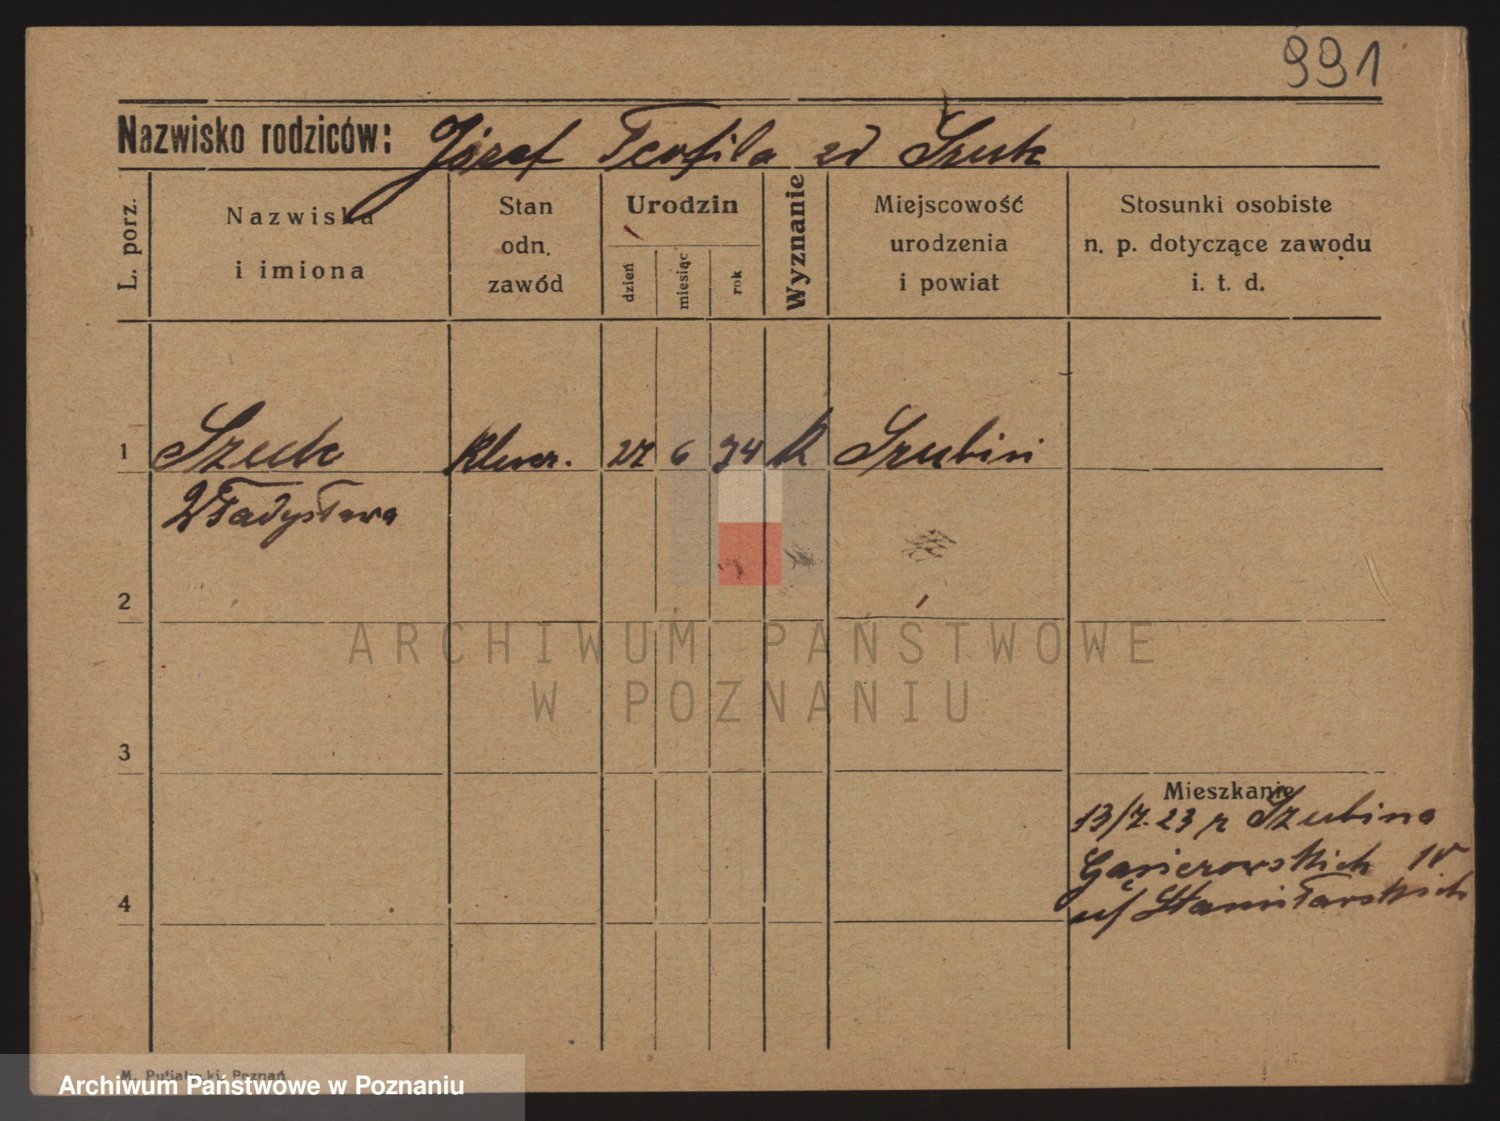 991
Nazwisko rodziców: Józef Teofila zd Szuk
L. porz.
Nazwiska
i imiona
Stan
odn.
zawód
Urodzin
dzień
miesiąc
rok
Wyznanie
Miejscowość
urodzenia
i powiat
Stosunki osobiste
n. p. dotyczące zawodu
i. t. d.
1 Szuk 27 6 94 k Szubin
Władysława
2
ARCHIWUM PAŃSTWOWE
W POZNANIU
3
Mieszkanie
13/7.23 z Szubina
Gąsierowskich 10
4
M. Putiatycki, Poznań
Archiwum Państwowe w Poznaniu